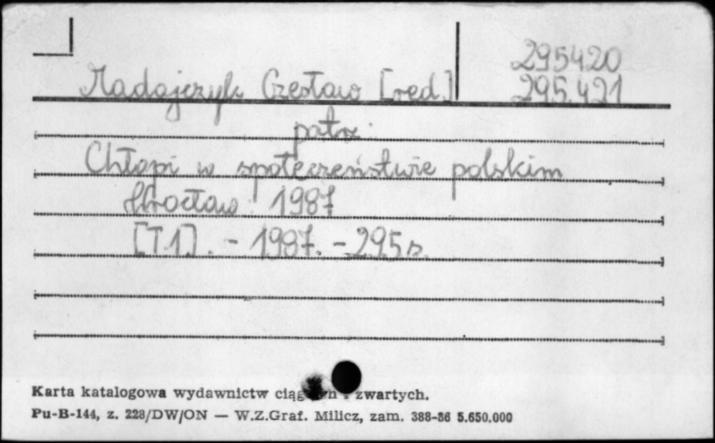 295420
Madajczyk Czesław [red.] 295421
patrz
Chłopi w społeczeństwie polskim
Wrocław 1987
[T.1]. - 1987. - 295 s.
Karta katalogowa wydawnictw zwartych.
Pu-B-144, z. 228/DW/ON — W.Z.Graf. Milicz, zam. 388-86 5.650.000